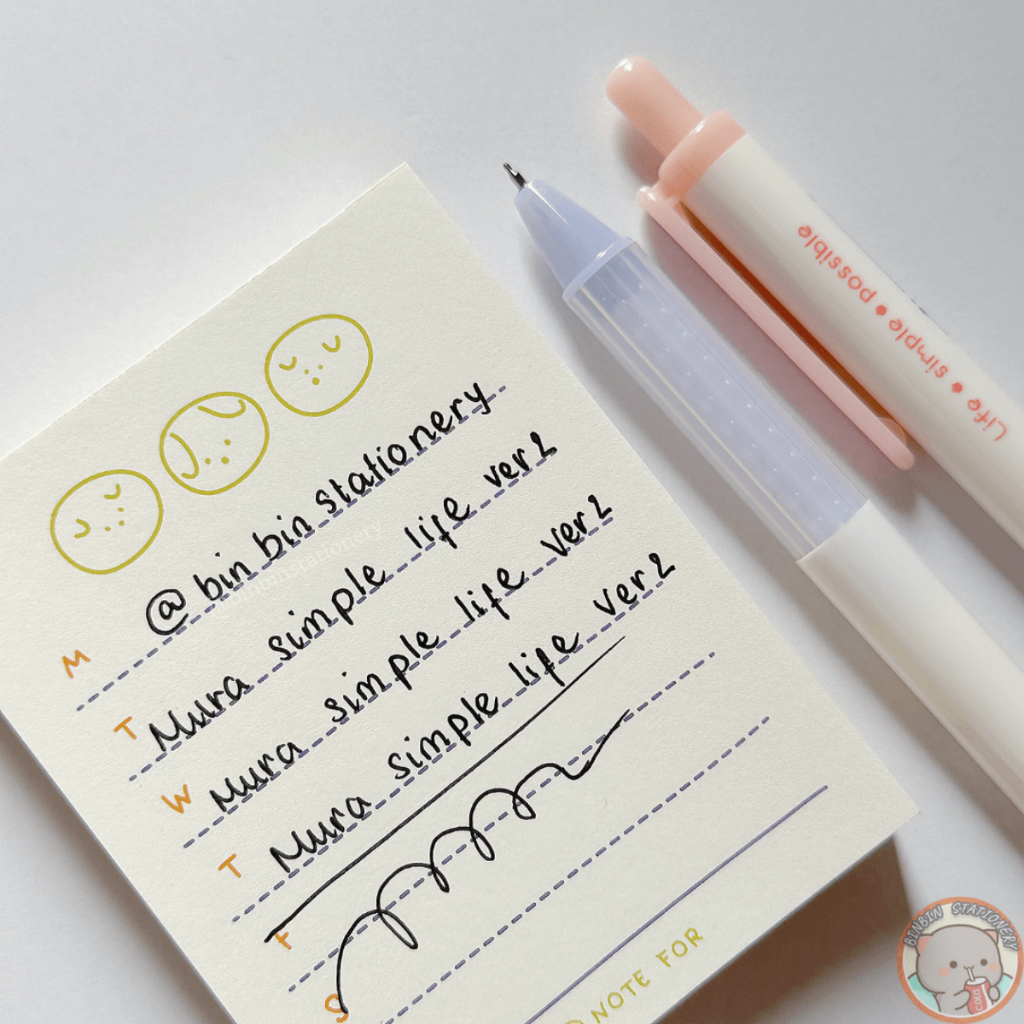 @ bin bin stationery
binbinstationery
M
T
Mura simple life ver 2
W
Mura simple life ver 2
T
Mura simple life ver 2
F
S
NOTE FOR
Life • simple • possible
BINBIN STATIONERY
COLA